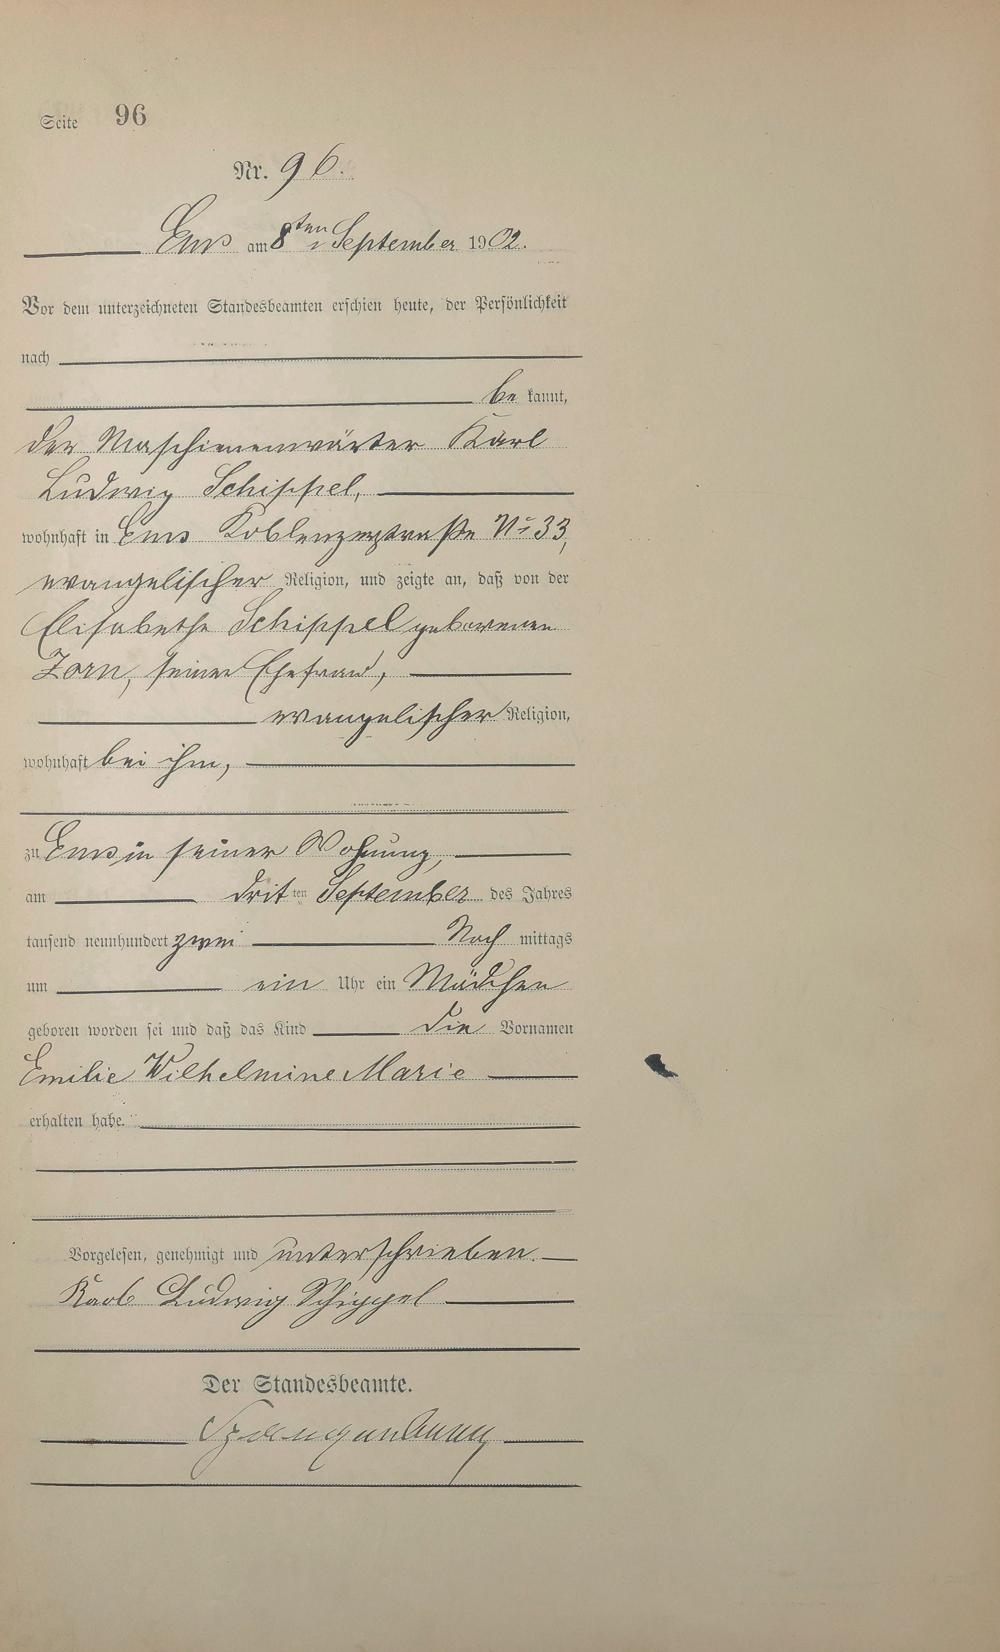 Seite 96
Nr. 96.
Ems am 8ten September 1902.
Vor dem unterzeichneten Standesbeamten erschien heute, der Persönlichkeit
nach
be kannt,
der Maschienenwärter Karl
Ludwig Schippel,
wohnhaft in Ems Koblenzerstraße No 33,
evangelischer Religion, und zeigte an, daß von der
Elisabetha Schippel geborenen
Zorn, seiner Ehefrau,
evangelischer Religion,
wohnhaft bei ihm,
zu Ems in seiner Wohnung,
am dritten September des Jahres
tausend neunhundert zwei Nach mittags
um ein Uhr ein Mädchen
geboren worden sei und daß das Kind die Vornamen
Emilie Wilhelmine Marie
erhalten habe.
Vorgelesen, genehmigt und unterschrieben.
Karl Ludwig Schippel
Der Standesbeamte.